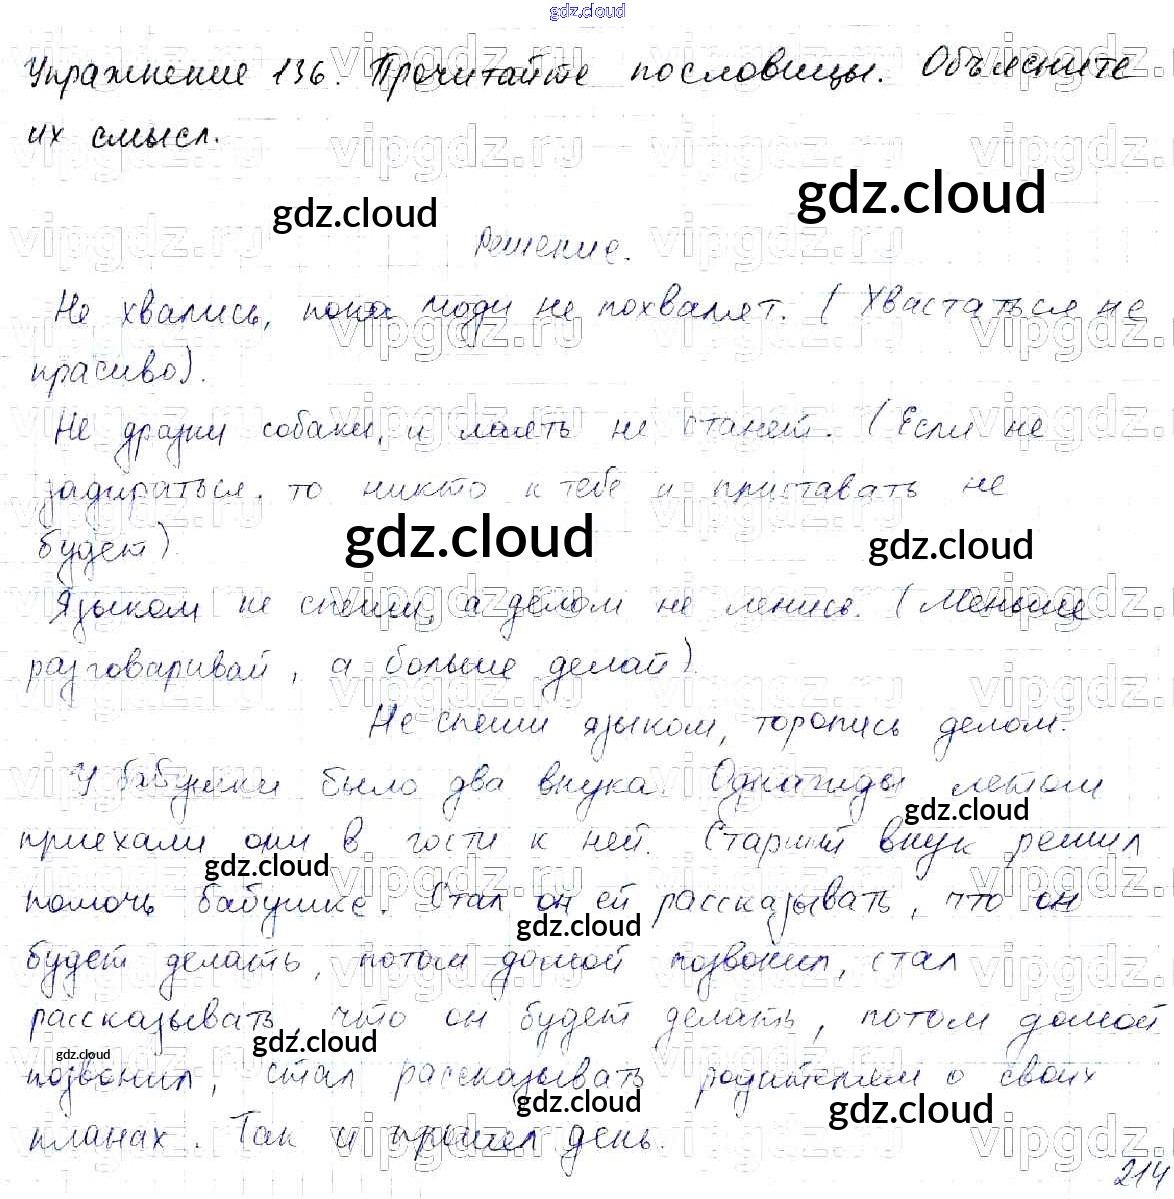 gdz.cloud
Упражнение 136. Прочитайте пословицы. Объясните
их смысл.
gdz.cloud
gdz.cloud
Решение.
Не хвались, пока люди не похвалят. (Хвастаться не
красиво).
Не дразни собаки, и лаять не станет. (Если не
задираться, то никто к тебе и приставать не
будет)
gdz.cloud
gdz.cloud
Языком не спеши, а делом не ленись. (Меньше
разговаривай, а больше делай)
Не спеши языком, торопись делом.
У бабушки было два внука. Однажды летом
gdz.cloud
приехали они в гости к ней. Старший внук решил
gdz.cloud
помочь бабушке. Стал он ей рассказывать, что он
gdz.cloud
будет делать, потом домой позвонил, стал
рассказывать что он будет делать, потом домой
gdz.cloud
gdz.cloud
позвонил, стал рассказывать родителям о своих
gdz.cloud
gdz.cloud
планах. Так и прошел день.
214